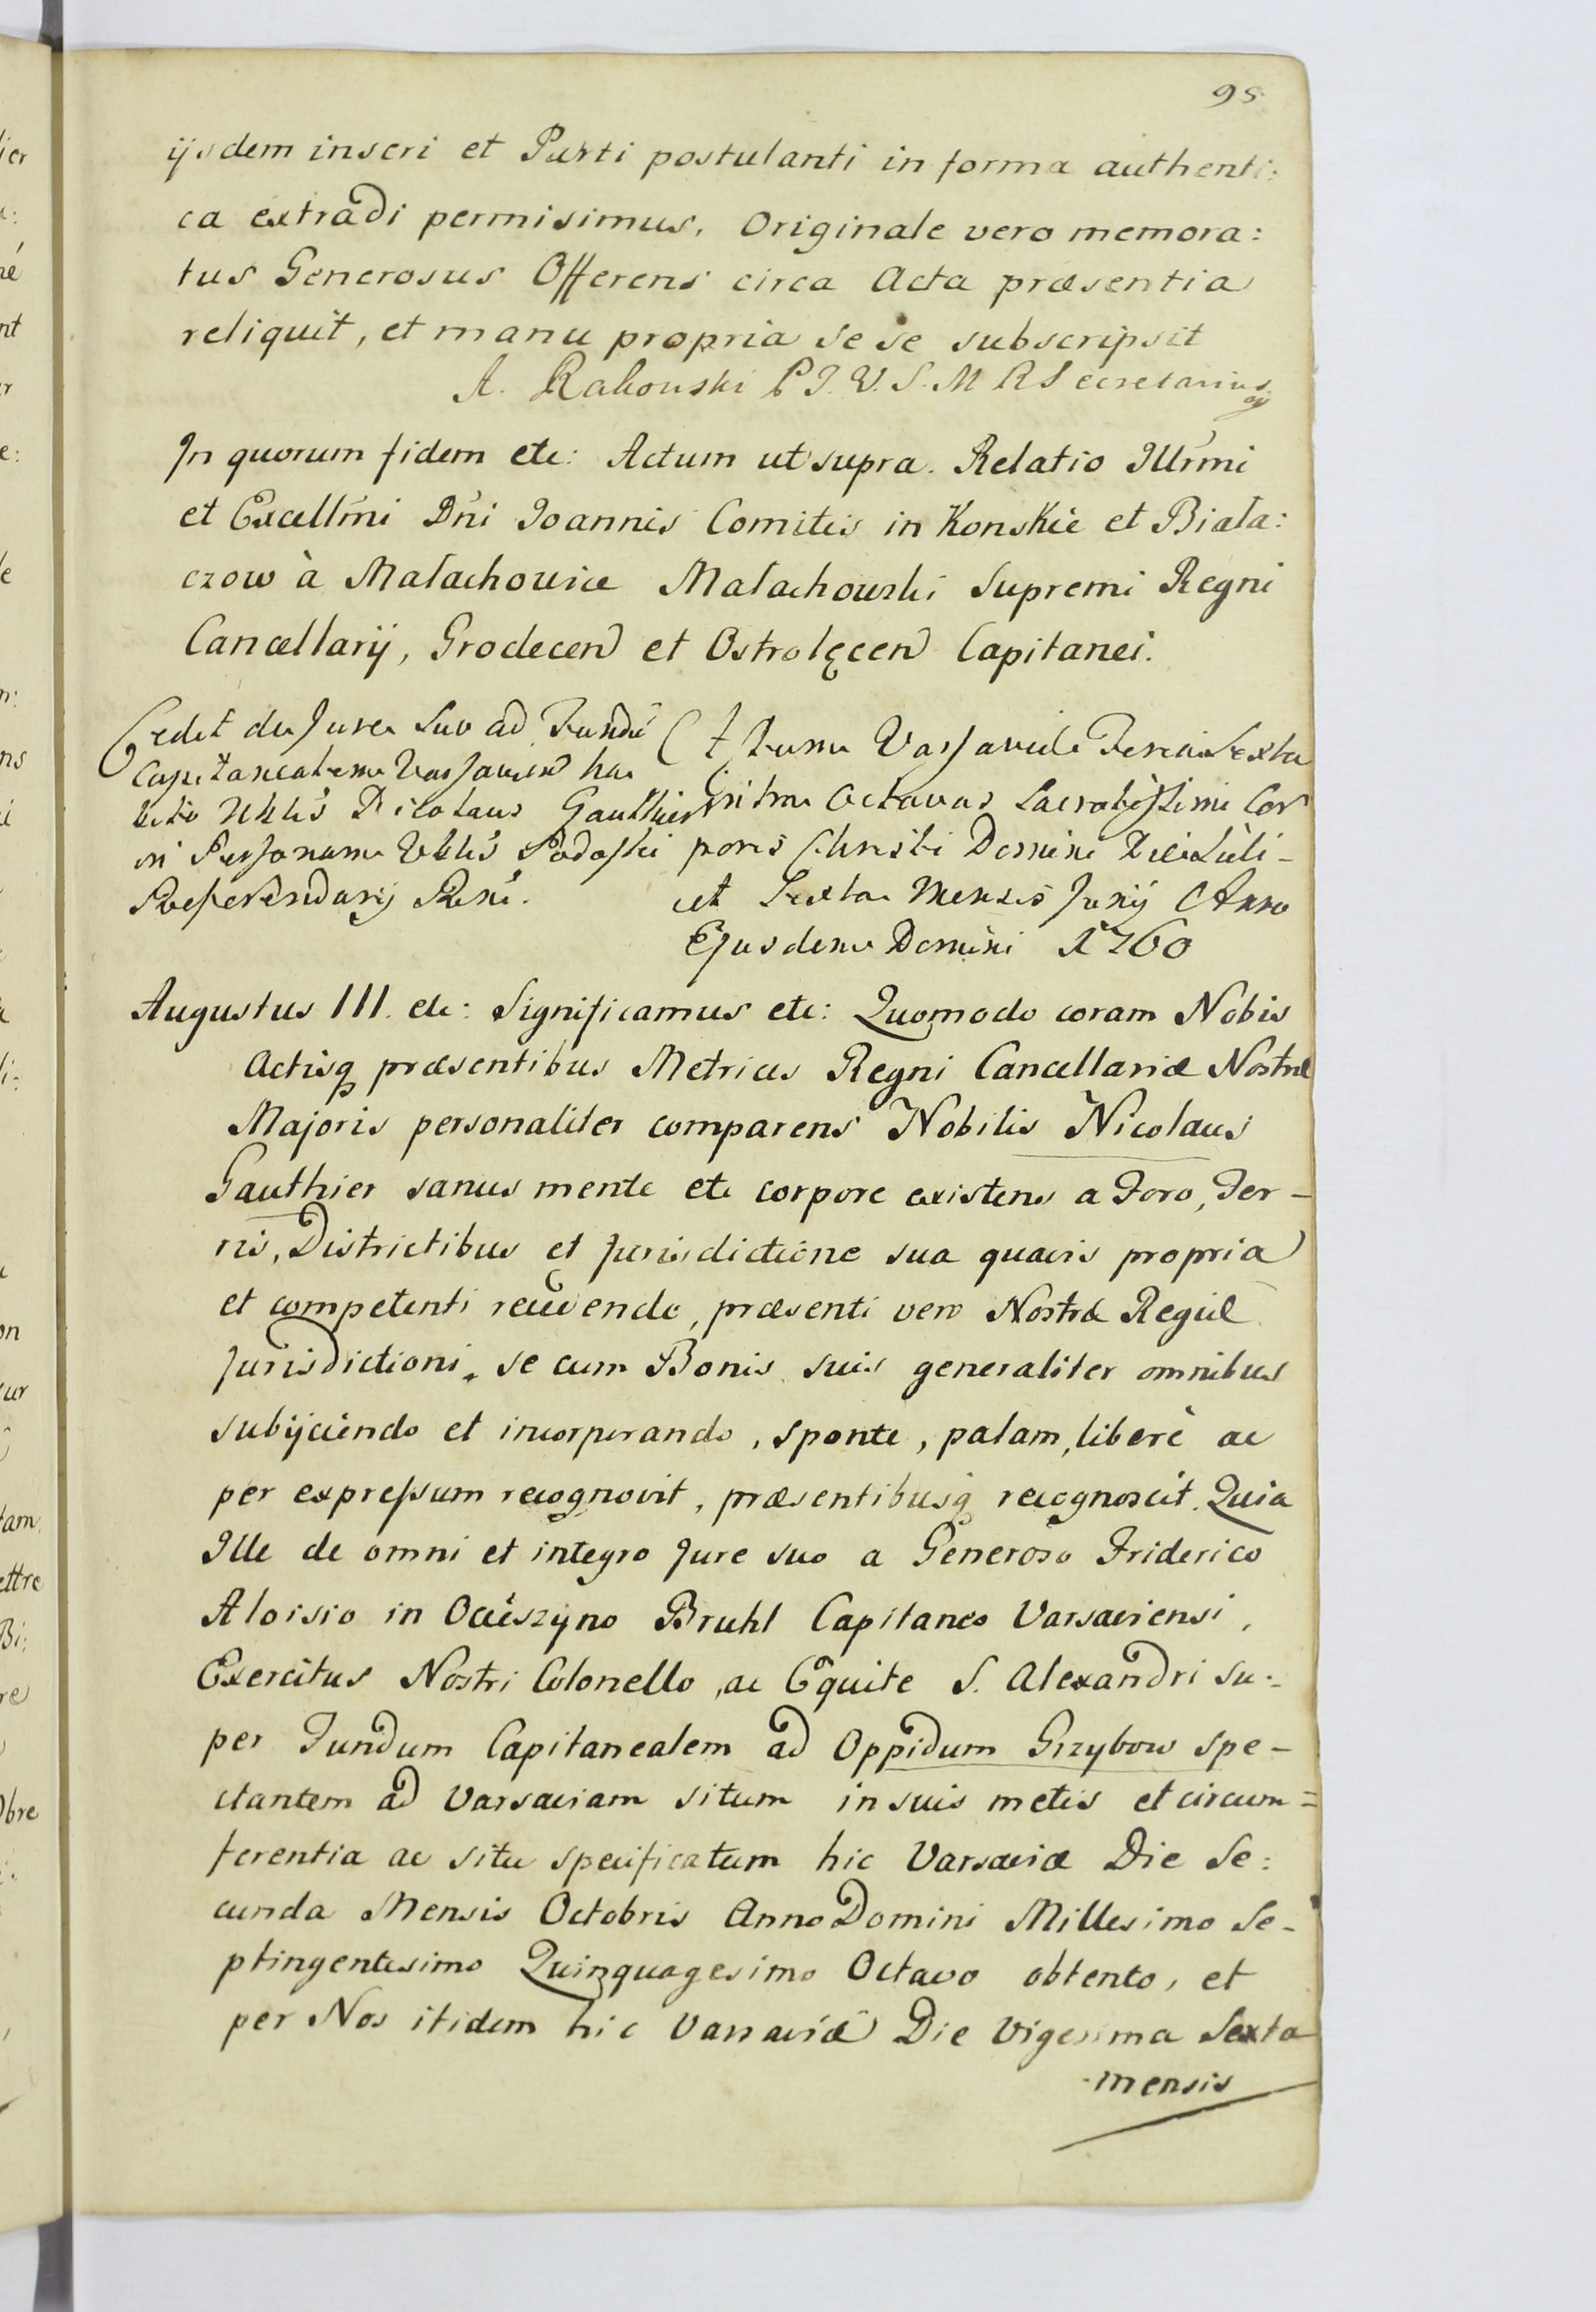 95
ijsdem inseri et Parti postulanti in forma authenti:
ca extradi permisimus, Originale vero memora:
tus Generosus Offerens circa Acta præsentia
reliquit, et manu propria se se subscripsit
A. Rakowski P J. V. S. M R Secretarius
In quorum fidem etc: Actum ut supra. Relatio Illrmi
et Excellmi Dni Joannis Comitis in Konskie et Biala:
czow à Malachowice Malachowski Supremi Regni
Cancellarij, Grodecen et Ostrolęcen Capitanei.
Cedit de Jure Suo ad Fundu
Capitanealem Varsavien ha
bito Nblis Nicolaus Gauthier
in Personam Podoski
Referendarij Reni.
Actum Varsaviæ Feria Sexta
intra Octavas Sacratissimi Cor
poris Christi Domini Die
et Sexta Mensis Junij Anno
Ejusdem Domini 1760
Augustus III. etc: Significamus etc: Quomodo coram Nobis
Actisq præsentibus Metrices Regni Cancellariæ Nostræ
Majoris personaliter comparens Nobilis Nicolaus
Gauthier sanus mente etc corpore existens a Foro, Ter-
ris, Districtibus et Jurisdictione sua quavis propria
et competenti recedendo, præsenti vero Nostræ Regiæ
Jurisdictioni, se cum Bonis suis generaliter omnibus
subijciendo et incorporando, sponte, palam, liberè ac
per expressum recognovit, præsentibusq recognoscit. Quia
Ille de omni et integro Jure suo a Generoso Friderico
Aloisio in Ocieszyno Bruhl Capitaneo Varsaviensi,
Exercitus Nostri Colonello, ac Equite S. Alexandri su:
per Fundum Capitanealem ad Oppidum Grzybow spe-
ctantem ad Varsaviam situm in suis metis et circum=
ferentia ac situ specificatum hic Varsaviæ Die Se:
cunda Mensis Octobris Anno Domini Millesimo Se-
ptingentesimo Quinquagesimo Octavo obtento, et
per Nos itidem hic Varsaviæ Die Vigesima Sexta
mensis